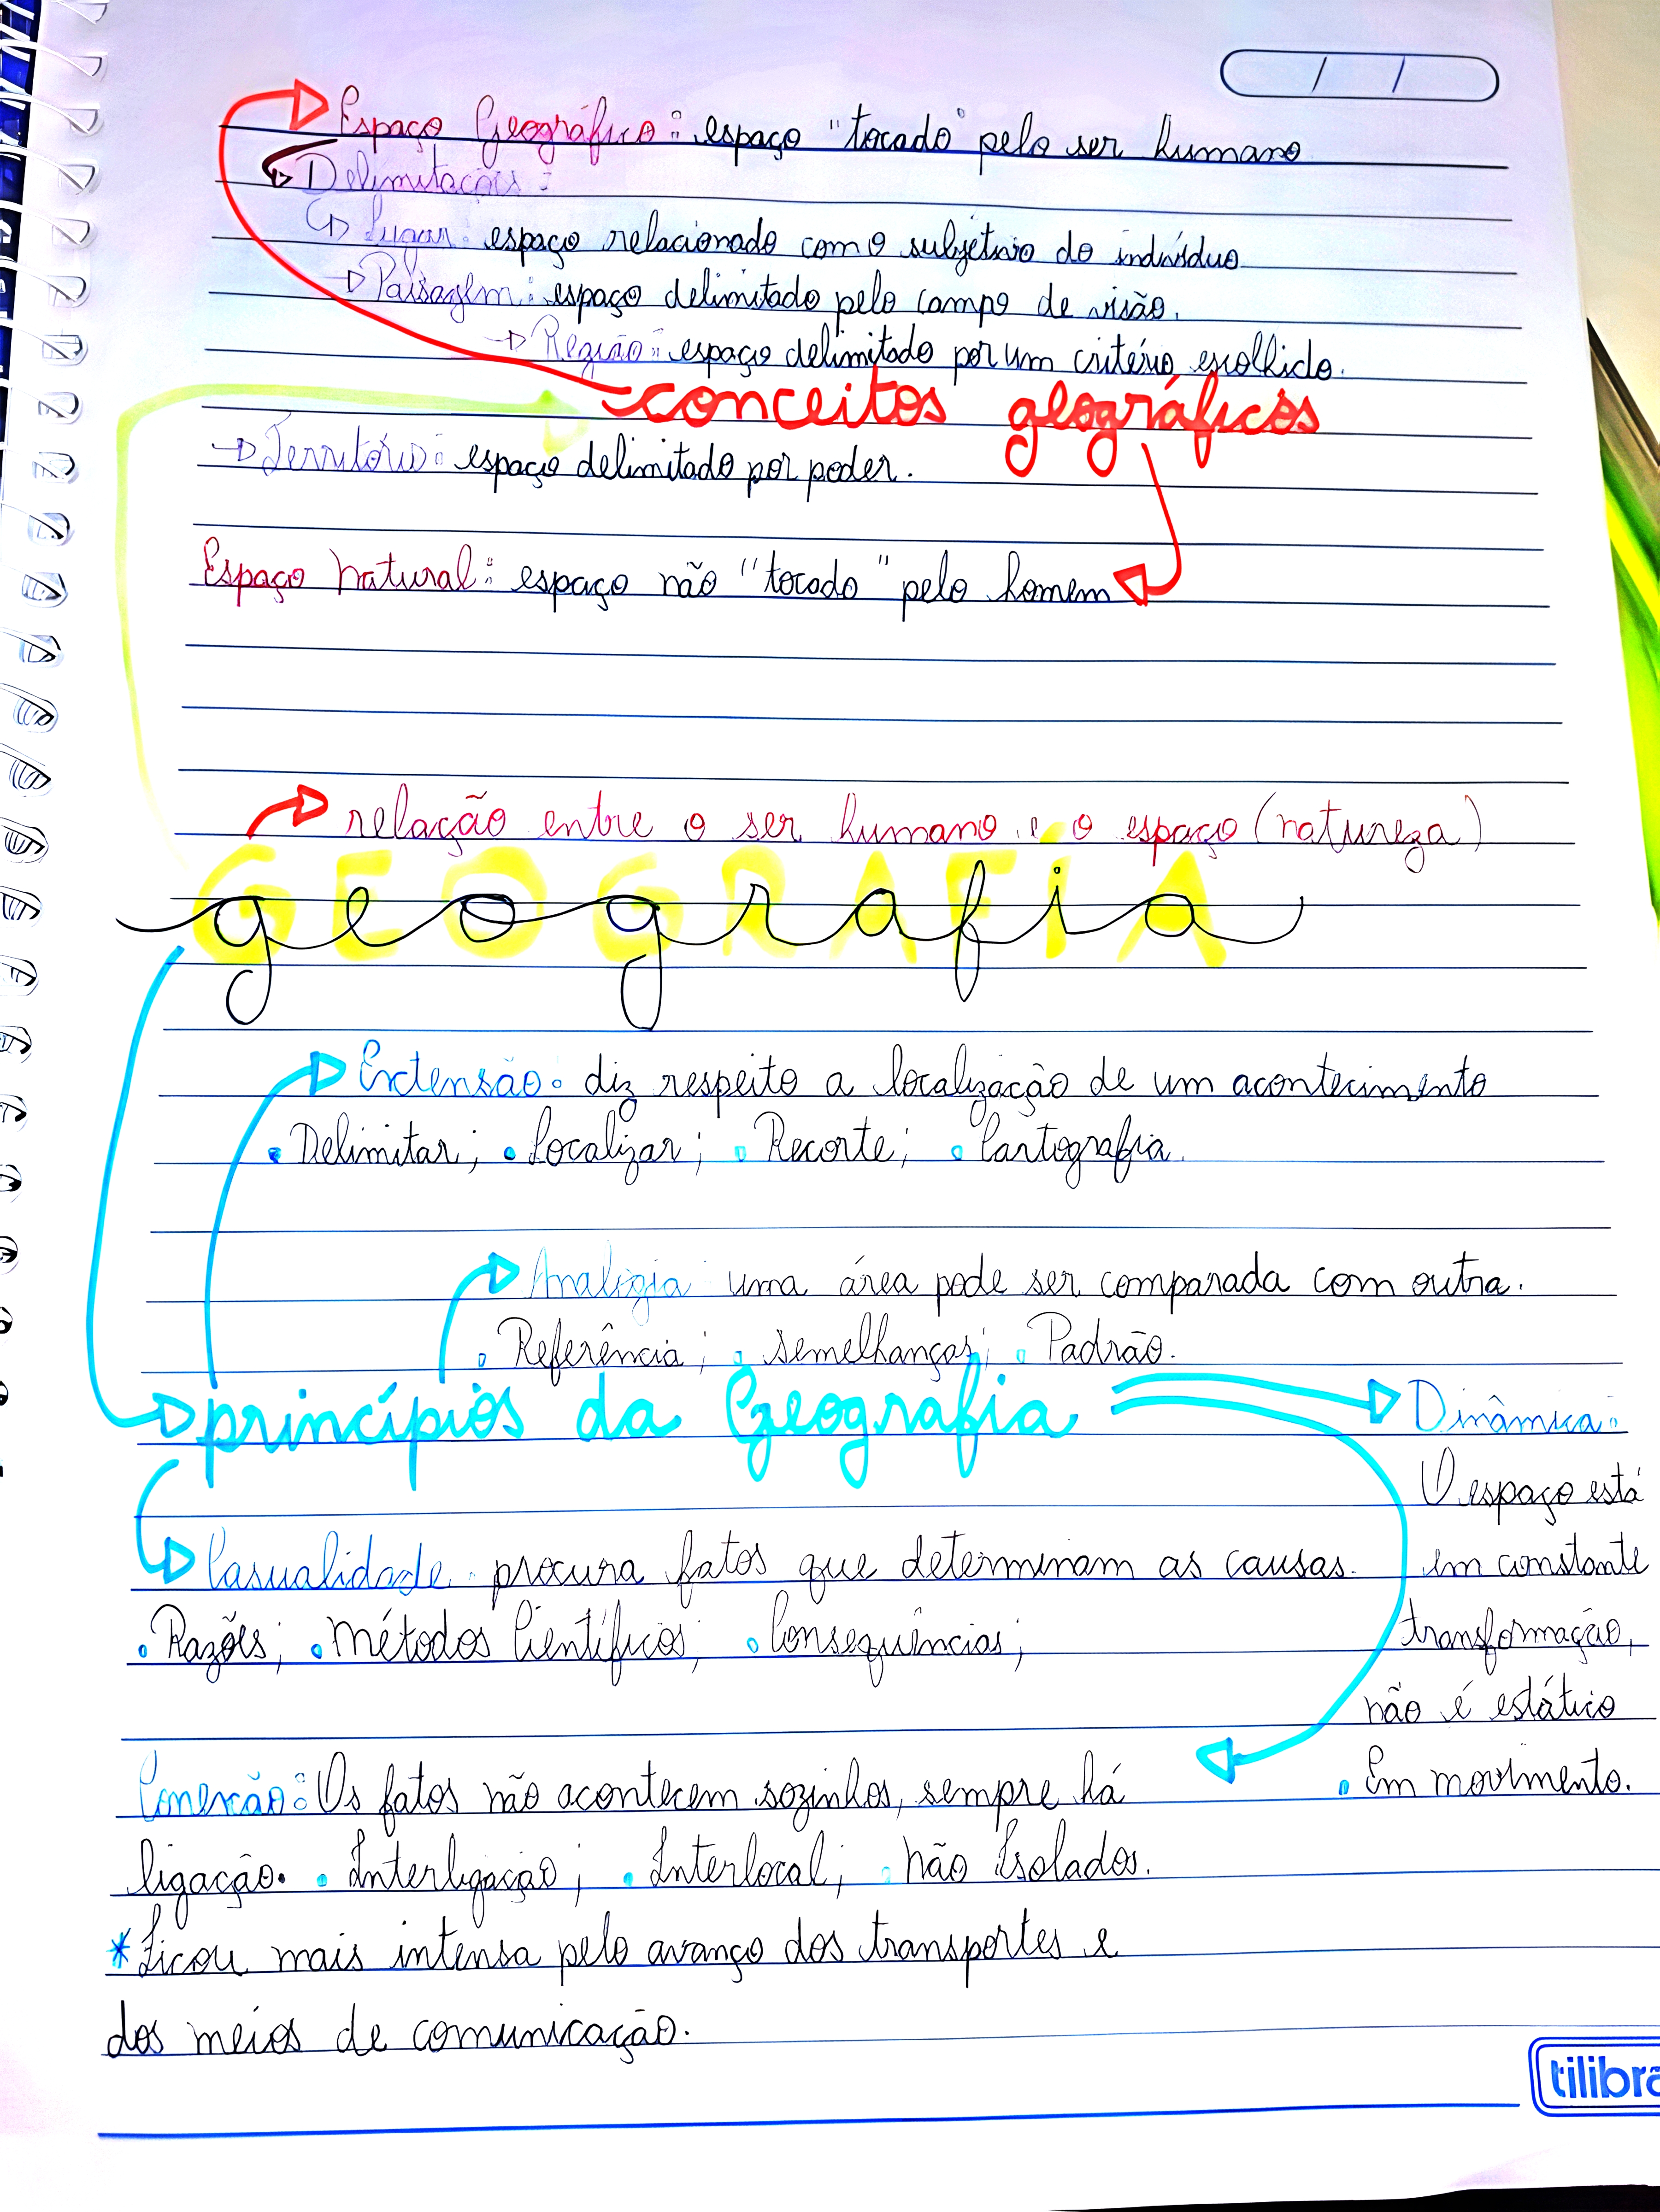 Espaço Geográfico: espaço "tocado" pelo ser humano
Delimitações:
Lugar: espaço relacionado com o subjetivo do indivíduo
Paisagem: espaço delimitado pelo campo de visão.
Região: espaço delimitado por um critério escolhido.
conceitos geográficos
Território: espaço delimitado por poder.
Espaço natural: espaço não "tocado" pelo homem
relação entre o ser humano e o espaço (natureza)
GEOGRAFIA
geografia
Extensão: diz respeito a localização de um acontecimento
• Delimitar; • Localizar; • Recorte; • Cartografia.
Analogia: uma área pode ser comparada com outra.
• Referência; • semelhanças; • Padrão.
princípios da Geografia
Dinâmica:
O espaço está
em constante
transformação,
não é estático
• Em movimento.
Casualidade: procura fatos que determinam as causas.
• Razões; • Métodos Científicos; • Consequências;
Conexão: Os fatos não acontecem sozinhos, sempre há
ligação. • Interligação; • Interlocal; • não Isolados.
* Ficou mais intensa pelo avanço dos transportes e
dos meios de comunicação.
tilibra